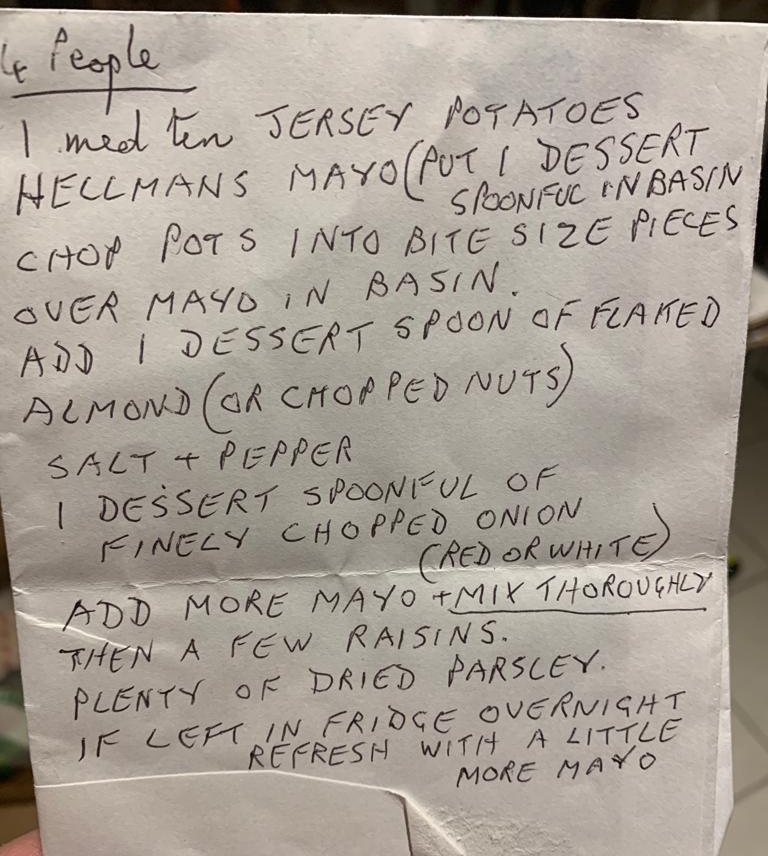 4 People
1 med ten JERSEY POTATOES
HELLMANS MAYO (PUT 1 DESSERT
SPOONFUL IN BASIN
CHOP POTS INTO BITE SIZE PIECES
OVER MAYO IN BASIN.
ADD 1 DESSERT SPOON OF FLAKED
ALMOND (OR CHOPPED NUTS)
SALT + PEPPER
1 DESSERT SPOONFUL OF
FINELY CHOPPED ONION
(RED OR WHITE)
ADD MORE MAYO + MIX THOROUGHLY
THEN A FEW RAISINS.
PLENTY OF DRIED PARSLEY.
IF LEFT IN FRIDGE OVERNIGHT
REFRESH WITH A LITTLE
MORE MAYO